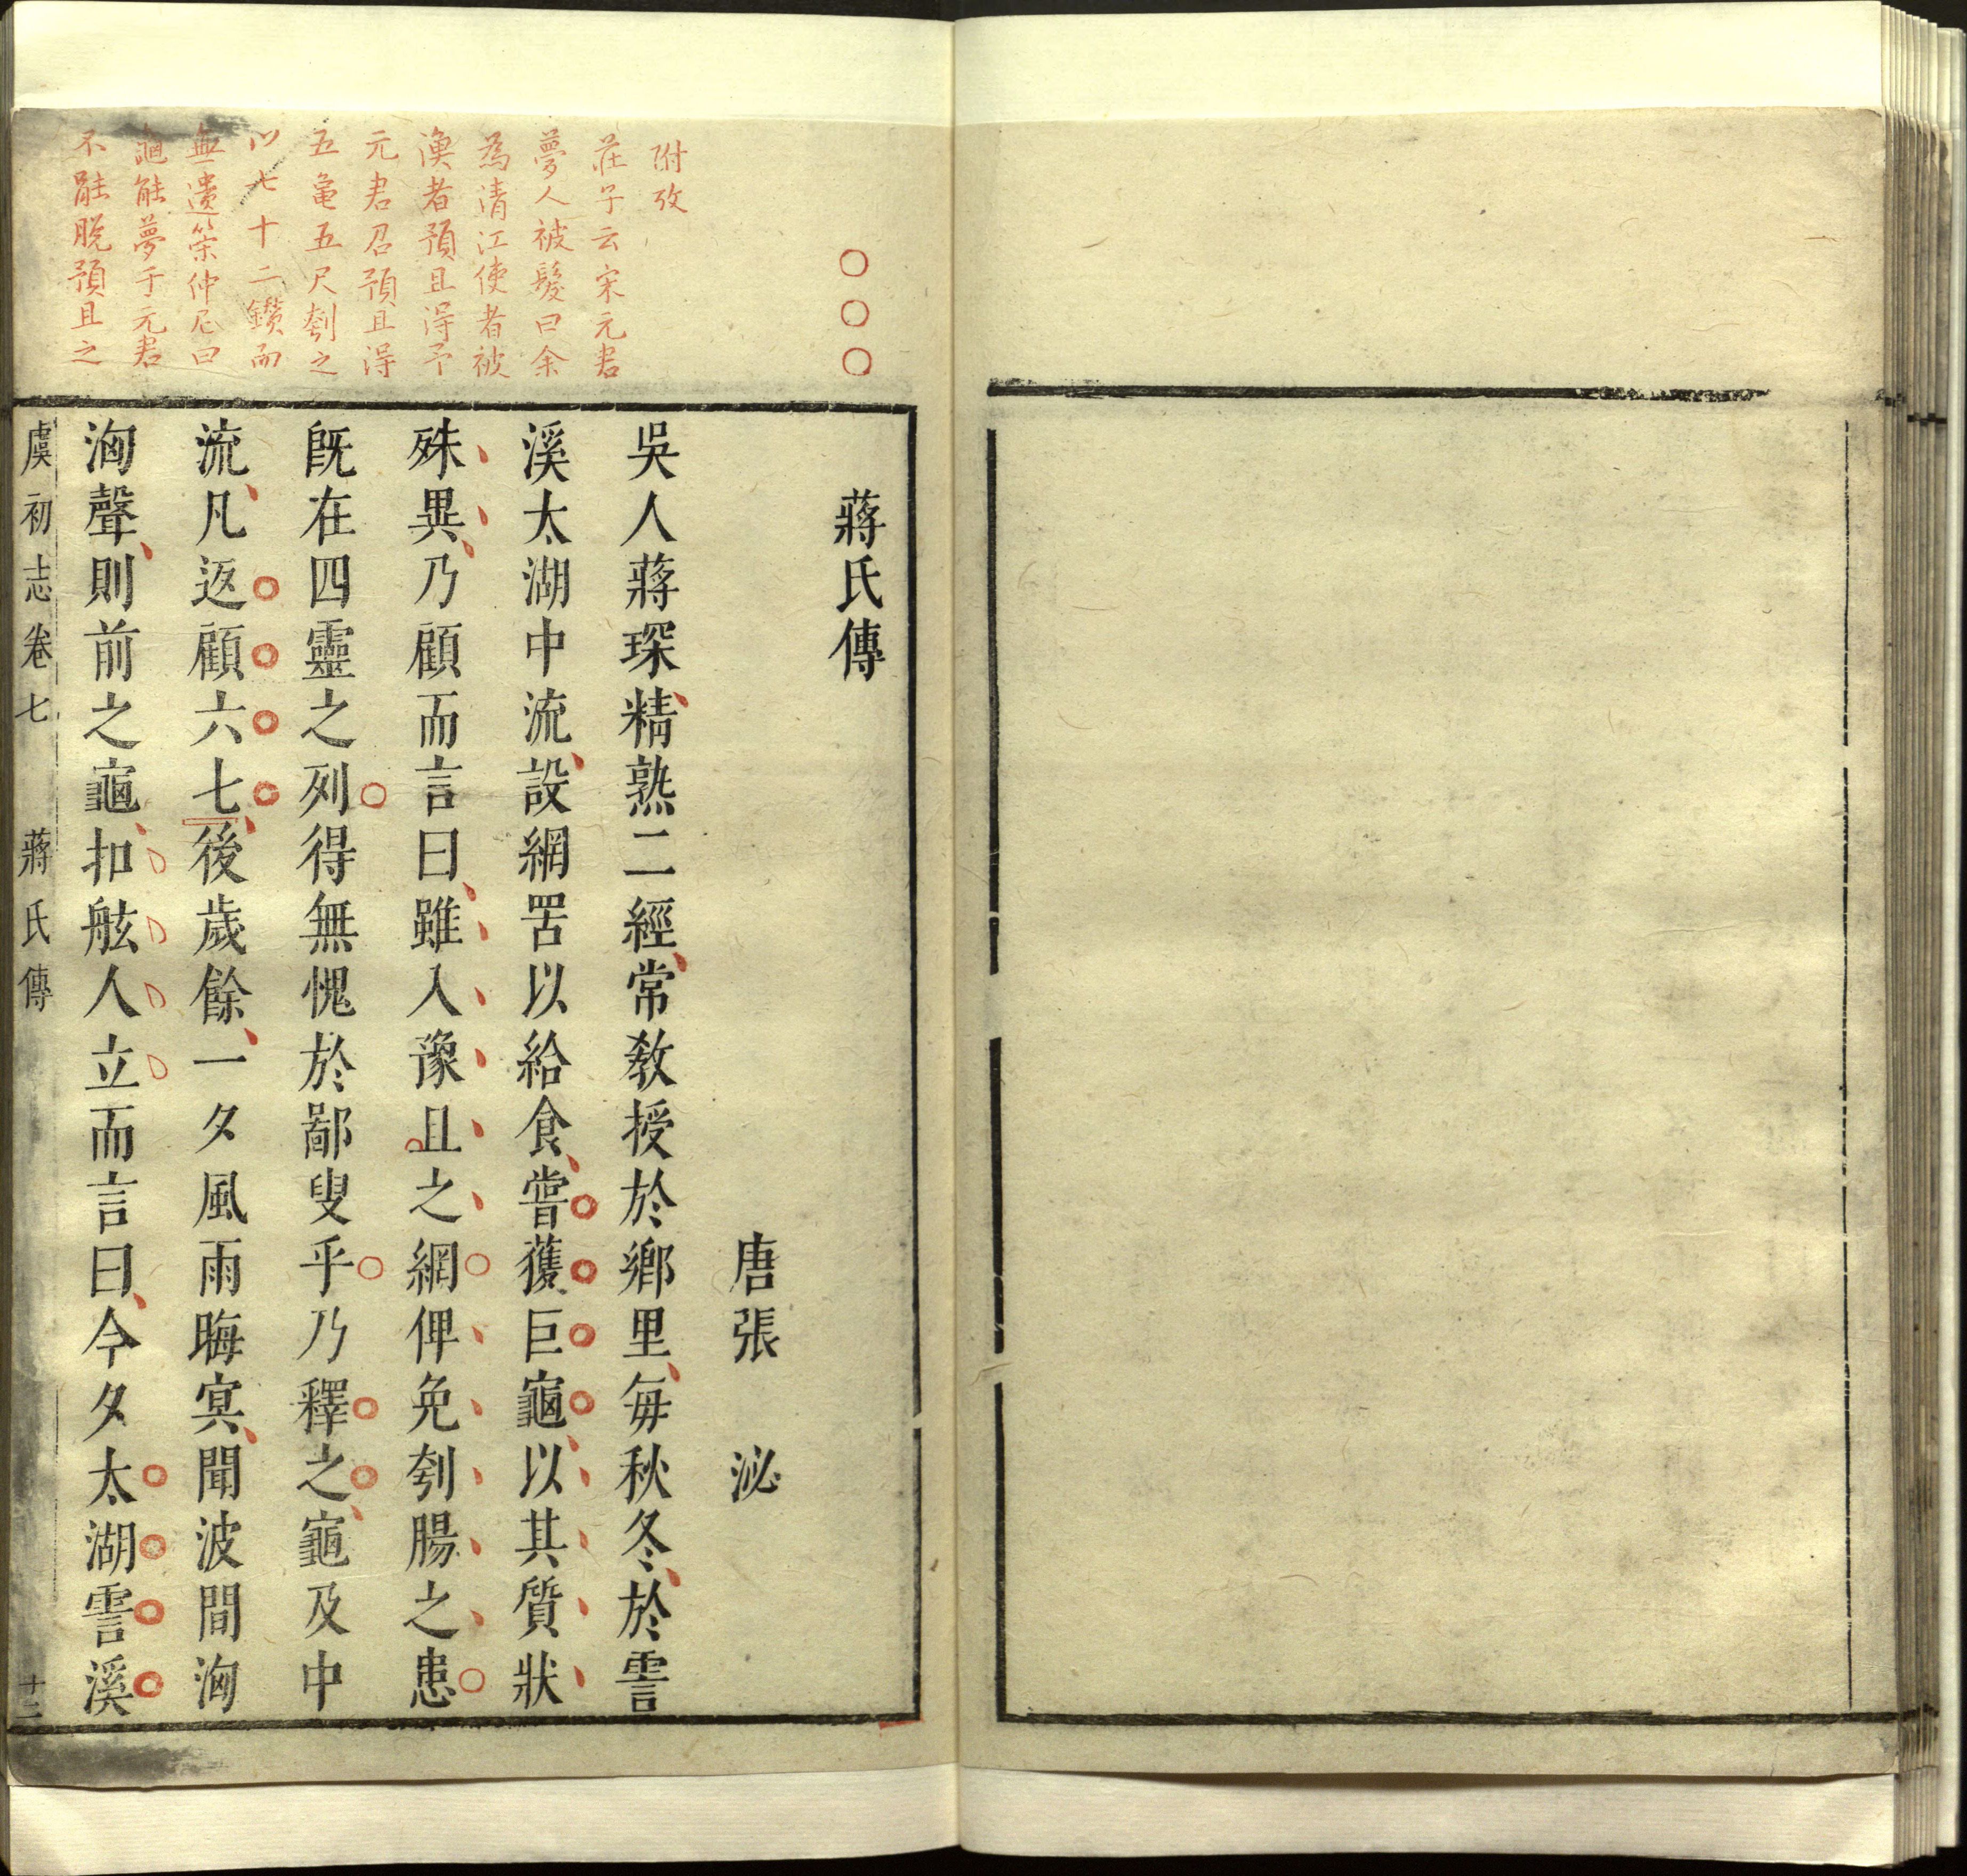 附攷
莊子云宋元君
夢人被髮曰余
為清江使者被
漁者預且得予
元君召預且得
五龜五尺刳之
以七十二鑽而
無遺筴仲尼曰
龜能夢于元君
不能脫預且之
蔣氏傳
唐張　泌
吳人蔣琛精熟二經常教授於鄉里每秋冬於霅
溪太湖中流設網罟以給食嘗獲巨龜以其質狀
殊異乃顧而言曰雖入豫且之網俾免刳腸之患
既在四靈之列得無愧於鄙叟乎乃釋之龜及中
流凡返顧六七後歲餘一夕風雨晦冥聞波間洶
洶聲則前之龜扣舷人立而言曰今夕太湖霅溪
虞初志卷七　蔣氏傳　十二